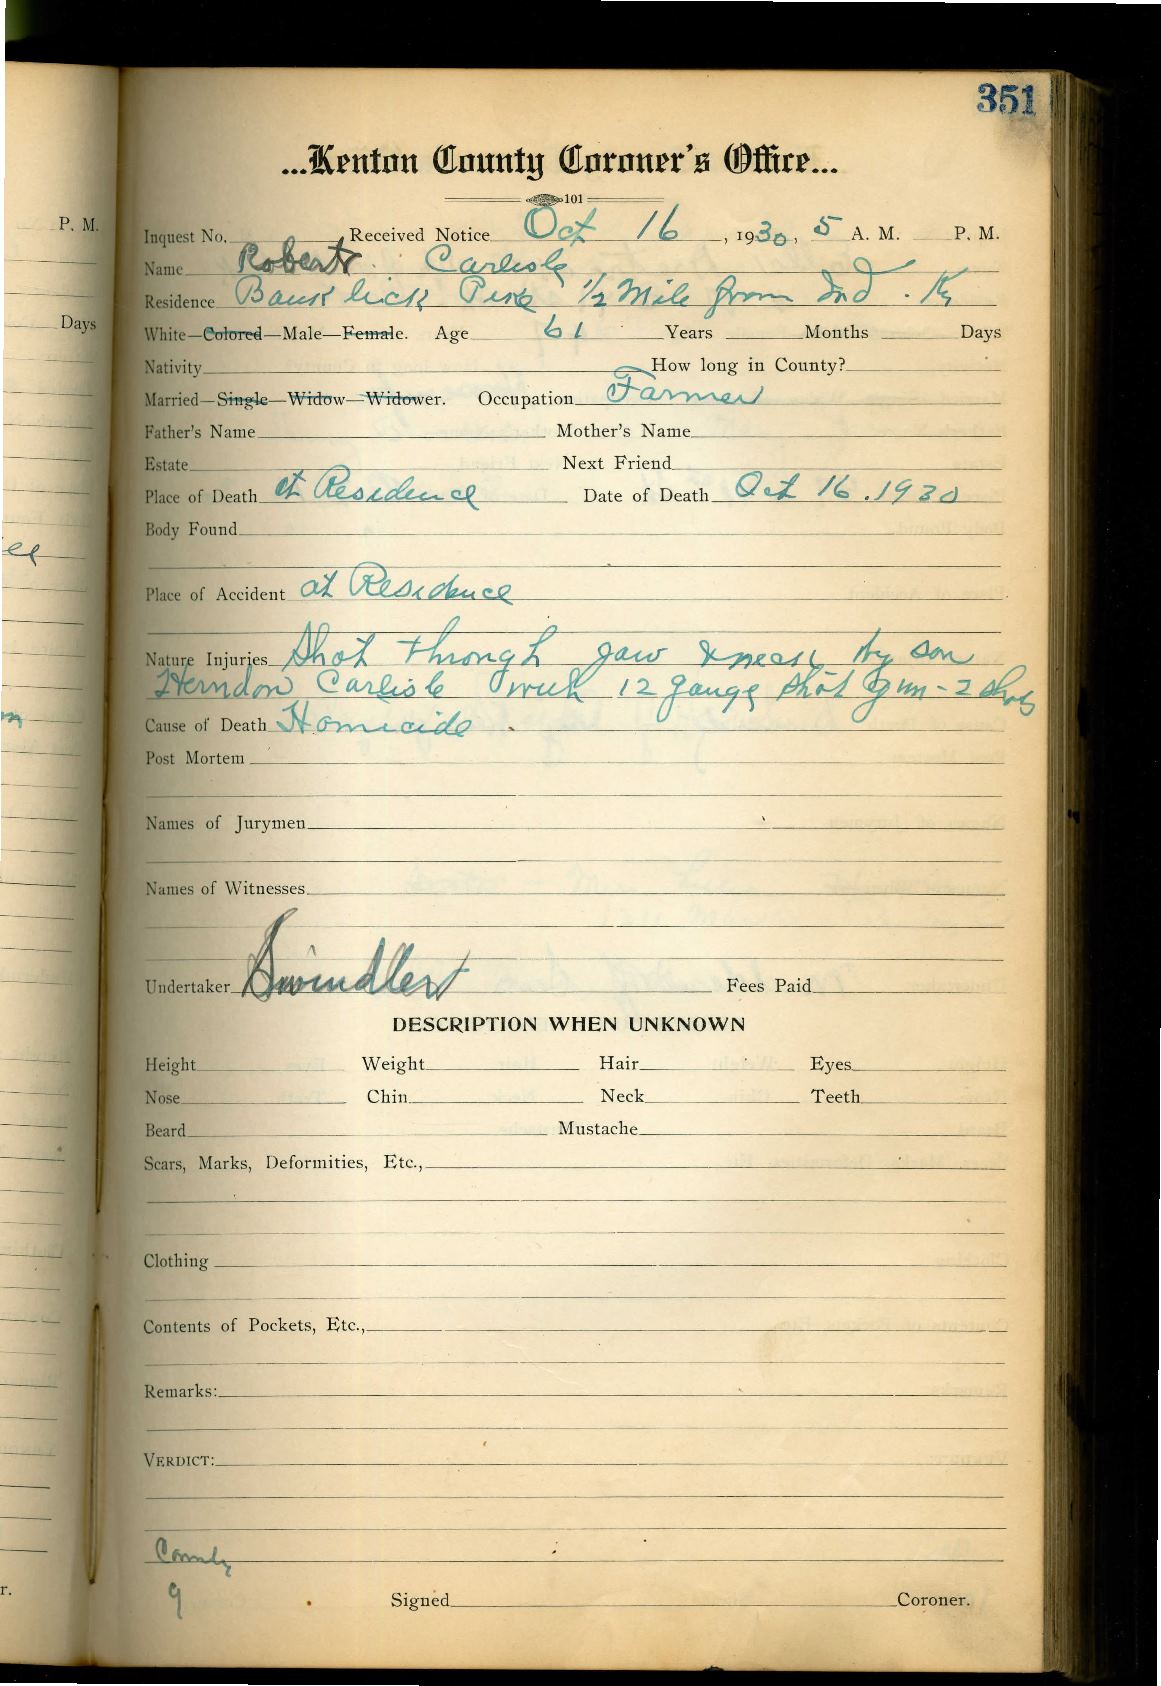 351
...Kenton County Coroner's Office...
101
Inquest No. Received Notice Oct 16, 1930, 5 A. M. P. M.
Name Robert Carlisle
Residence Bank lick Pike 1/2 Mile from Ind. Ky
White—Colored—Male—Female. Age 61 Years Months Days
Nativity How long in County?
Married—Single—Widow—Widower. Occupation Farmer
Father's Name Mother's Name
Estate Next Friend
Place of Death at Residence Date of Death Oct 16. 1930
Body Found
Place of Accident at Residence
Nature Injuries Shot through jaw & neck by son
Herndon Carlisle with 12 gauge shot gun - 2 shots
Cause of Death Homicide
Post Mortem
Names of Jurymen
Names of Witnesses
Undertaker Swindler Fees Paid
DESCRIPTION WHEN UNKNOWN
Height Weight Hair Eyes
Nose Chin Neck Teeth
Beard Mustache
Scars, Marks, Deformities, Etc.,
Clothing
Contents of Pockets, Etc.,
Remarks:
VERDICT:
County
9
Signed Coroner.
P. M.
Days
ee
r.